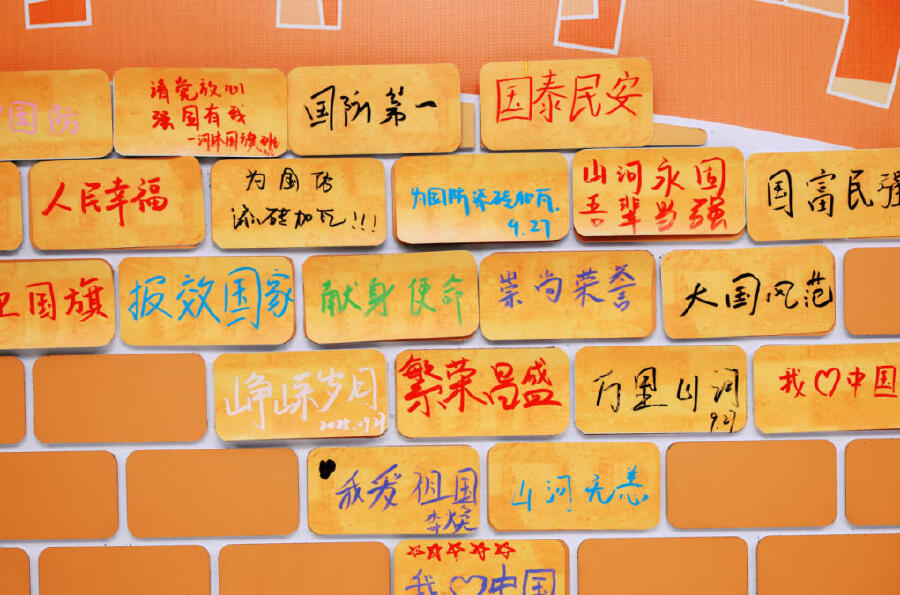 国防
请党放心
强国有我
国防第一
国泰民安
人民幸福
为国防
添砖加瓦!!!
为国防添砖加瓦.
9.27
山河永固
吾辈当强
国富民强
卫国旗
报效国家
献身使命
崇尚荣誉
大国风范
峥嵘岁月
2025.09.27
繁荣昌盛
万里山河
9.27
我♡中国
我爱祖国
李焕
山河无恙
☆☆☆☆☆
我♡中国